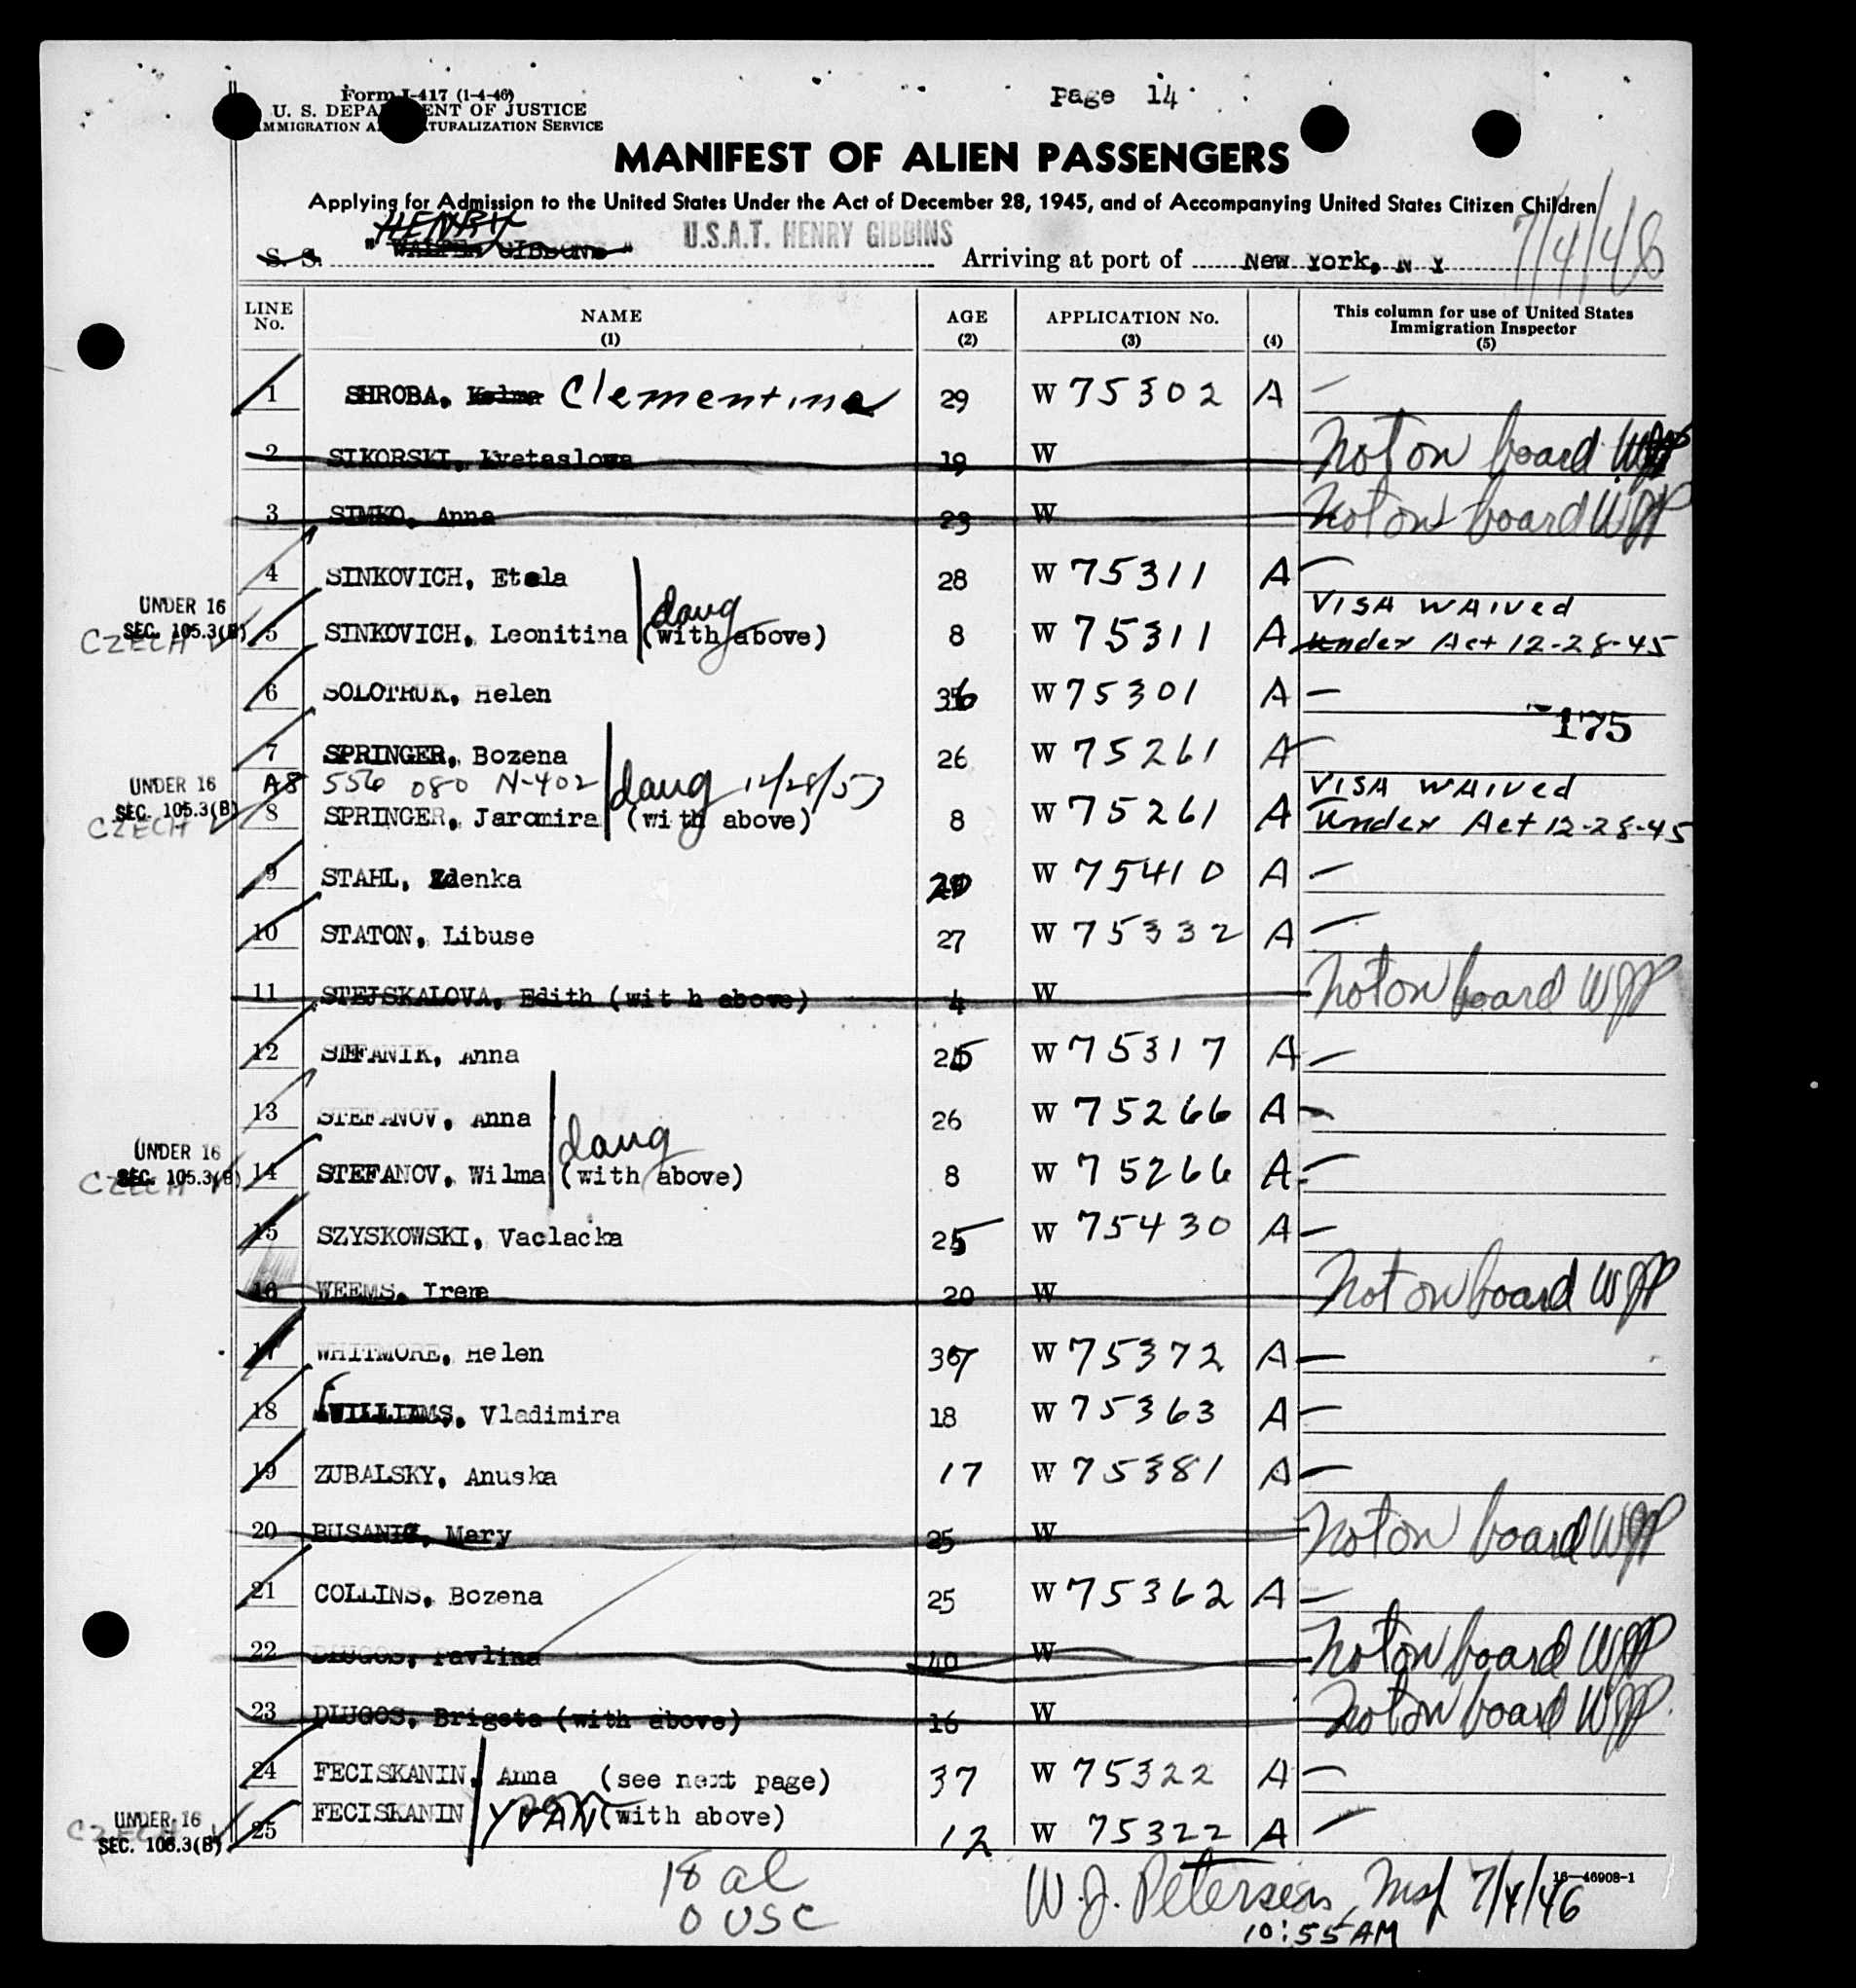 Form I-417 (1-4-46)
U. S. DEPARTMENT OF JUSTICE
IMMIGRATION AND NATURALIZATION SERVICE
Page 14
MANIFEST OF ALIEN PASSENGERS
Applying for Admission to the United States Under the Act of December 28, 1945, and of Accompanying United States Citizen Children
HENRY
S. S. "WALTER GIBBONS" U.S.A.T. HENRY GIBBINS Arriving at port of New York, N Y 7/4/46
LINE No. NAME (1) AGE (2) APPLICATION No. (3) (4) This column for use of United States Immigration Inspector (5)
1 SHROBA, Clementina 29 W 75302 A –
2 SIKORSKI, Kvetaslowa 19 W Not on board WJP
3 SIMKO, Anna 23 W Not on board WJP
4 SINKOVICH, Etela 28 W 75311 A –
UNDER 16 SEC. 105.3(B) CZECH 5 SINKOVICH, Leonitina daug (with above) 8 W 75311 A VISA WAIVED Under Act 12-28-45
6 SOLOTRUK, Helen 36 W 75301 A –
175
7 SPRINGER, Bozena 26 W 75261 A –
A8 556 080 N-402 12/28/53
UNDER 16 SEC. 105.3(B) CZECH 8 SPRINGER, Jaromira daug (with above) 8 W 75261 A VISA WAIVED Under Act 12-28-45
9 STAHL, Zdenka W 75410 A –
10 STATON, Libuse 27 W 75332 A –
11 STEJSKALOVA, Edith (wit h above) 4 W Not on board WJP
12 STEFANIK, Anna 25 W 75317 A –
13 STEFANOV, Anna 26 W 75266 A –
UNDER 16 SEC. 105.3(B) CZECH 14 STEFANOV, Wilma daug (with above) 8 W 75266 A –
15 SZYSKOWSKI, Vaclacka 25 W 75430 A –
16 WEEMS, Irene 20 W Not on board WJP
17 WHITMORE, Helen 37 W 75372 A –
18 WILLIAMS, Vladimira 18 W 75363 A –
19 ZUBALSKY, Anuska 17 W 75381 A –
20 BUSANIC, Mary 25 W Not on board WJP
21 COLLINS, Bozena 25 W 75362 A –
22 DLUGOS, Pavlina 40 W Not on board WJP
23 DLUGOS, Brigeta (with above) 16 W Not on board WJP
24 FECISKANIN, Anna (see next page) 37 W 75322 A –
UNDER 16 SEC. 105.3(B) CZECH 25 FECISKANIN YVAN son (with above) 12 W 75322 A –
16—46908-1
18 al
0 USC
W. J. Petersen, Insp 7/4/46
10:55 AM